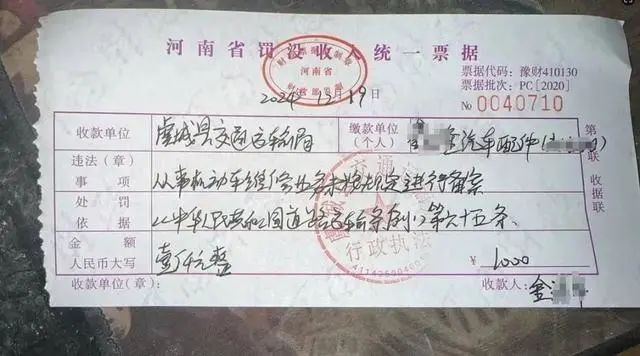 河南省罚没收入统一票据
财政部监制
河南省
票据代码：豫财410130
票据批次：PC [2020]
No 0040710
2024 12月19
收款单位 虞城县交通运输局 缴款单位（个人） 金汽车配件(
违法（章）事项 从事机动车维修业务未按规定进行备案
处罚依据 《中华人民共和国道路运输条例》第六十五条
金额
人民币大写 壹仟元整 ¥ 1000
收款单位(章)： 收款人：金
第二联 收据联
行政执法